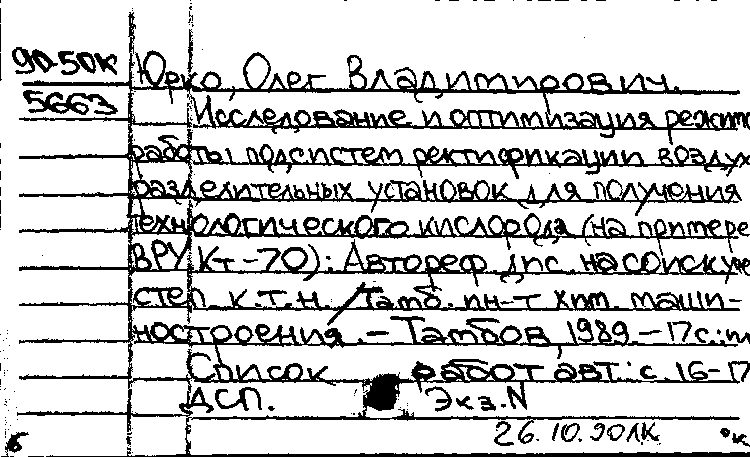 90-50К Юрко, Олег Владимирович.
5663 Исследование и оптимизация режимо
работы подсистем ректификации воздух
разделительных установок для получения
технологического кислорода (на примере
ВРУ Кт-70): Автореф. дис. на соиск. уче
степ. к.т.н. / Тамб. ин-т хим. маши-
ностроения. – Тамбов, 1989. – 17 с.: и
Список работ авт.: с. 16-17
ДСП. Экз. N
26.10.90ЛК
б